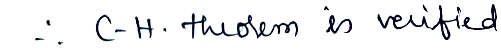 ∴ C-H. theorem is verified